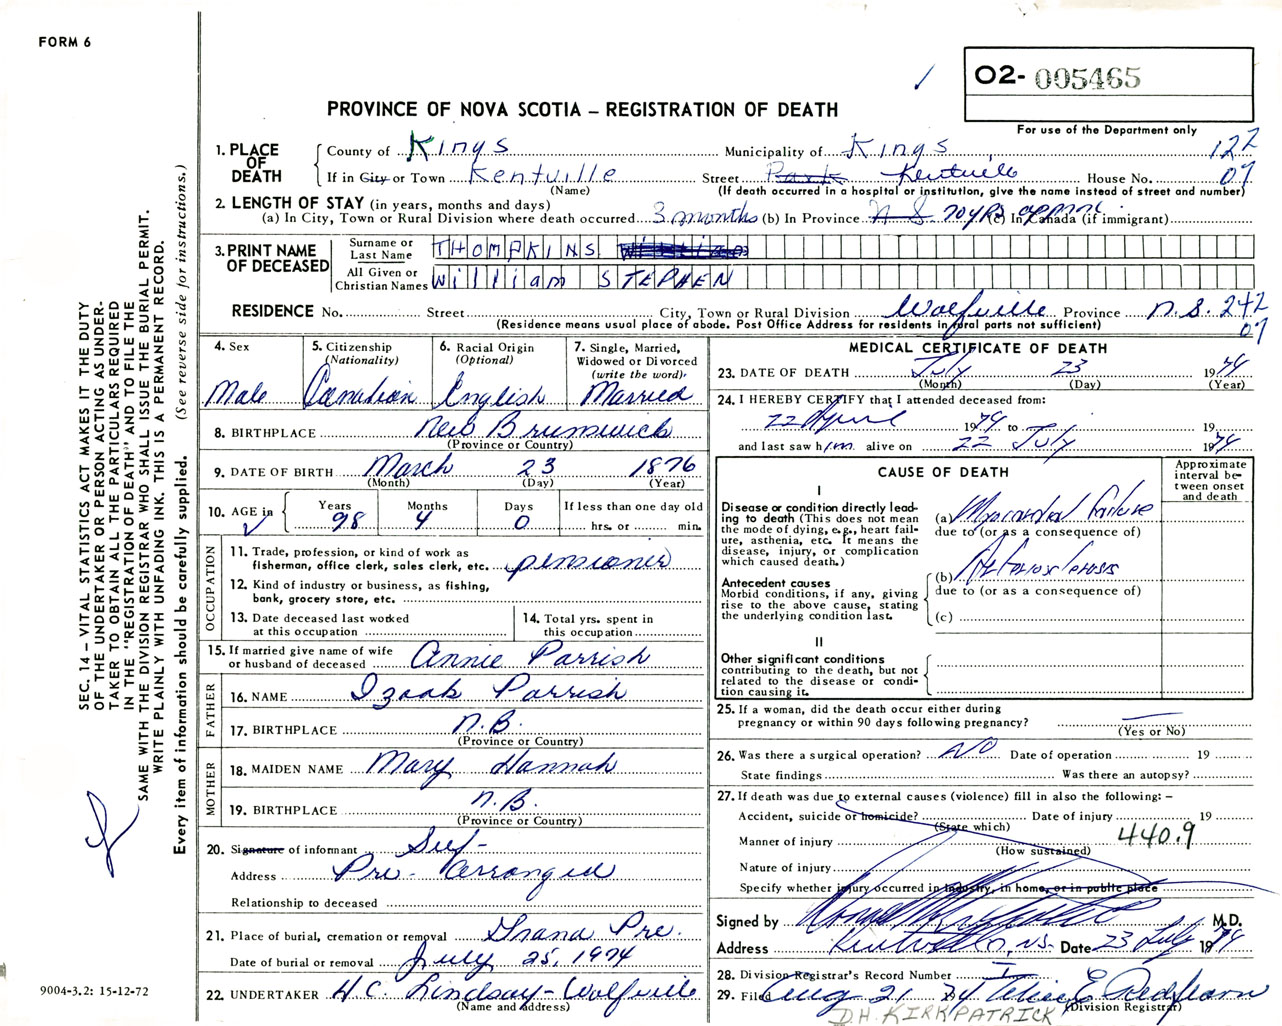 FORM 6
O2- 005465
PROVINCE OF NOVA SCOTIA – REGISTRATION OF DEATH
For use of the Department only
1. PLACE OF DEATH
County of Kings Municipality of Kings 122
If in City or Town Kentville Street Park Kentville House No. 07
(Name) (If death occurred in a hospital or institution, give the name instead of street and number)
2. LENGTH OF STAY (in years, months and days)
(a) In City, Town or Rural Division where death occurred 3 months (b) In Province N S 70 yrs approx. (c) In Canada (if immigrant)
3. PRINT NAME OF DECEASED
Surname or Last Name THOMPKINS
All Given or Christian Names William STEPHEN
RESIDENCE No. Street City, Town or Rural Division Wolfville Province N.S. 242
07
(Residence means usual place of abode. Post Office Address for residents in rural parts not sufficient)
4. Sex
Male
5. Citizenship (Nationality)
Canadian
6. Racial Origin (Optional)
English
7. Single, Married, Widowed or Divorced (write the word)
Married
8. BIRTHPLACE New Brunswick
(Province or Country)
9. DATE OF BIRTH March 23 1876
(Month) (Day) (Year)
10. AGE in Years Months Days If less than one day old
98 4 0 hrs. or min.
OCCUPATION
11. Trade, profession, or kind of work as fisherman, office clerk, sales clerk, etc. pensioner
12. Kind of industry or business, as fishing, bank, grocery store, etc.
13. Date deceased last worked at this occupation
14. Total yrs. spent in this occupation
15. If married give name of wife or husband of deceased Annie Parrish
FATHER
16. NAME Izaak Parrish
17. BIRTHPLACE N.B.
(Province or Country)
MOTHER
18. MAIDEN NAME Mary Hannah
19. BIRTHPLACE N.B.
(Province or Country)
20. Signature of informant Self-
Address Pre-arranged
Relationship to deceased
21. Place of burial, cremation or removal Grand Pre.
Date of burial or removal July 25, 1974
22. UNDERTAKER H.C. Lindsay-Wolfville
(Name and address)
MEDICAL CERTIFICATE OF DEATH
23. DATE OF DEATH July 23 1974
(Month) (Day) (Year)
24. I HEREBY CERTIFY that I attended deceased from:
22 April 1974 to 19
and last saw him alive on 22 July 1974
CAUSE OF DEATH
Approximate interval between onset and death
I
Disease or condition directly leading to death (This does not mean the mode of dying, e.g., heart failure, asthenia, etc. It means the disease, injury, or complication which caused death.)
(a) Myocardial failure
due to (or as a consequence of)
Antecedent causes
Morbid conditions, if any, giving rise to the above cause, stating the underlying condition last.
(b) Arteriosclerosis
due to (or as a consequence of)
(c)
II
Other significant conditions contributing to the death, but not related to the disease or condition causing it.
25. If a woman, did the death occur either during pregnancy or within 90 days following pregnancy?
(Yes or No)
26. Was there a surgical operation? NO Date of operation 19
State findings Was there an autopsy?
27. If death was due to external causes (violence) fill in also the following: –
Accident, suicide or homicide? Date of injury 19
(State which)
Manner of injury 440.9
(How sustained)
Nature of injury
Specify whether injury occurred in industry, in home, or in public place
Signed by M.D.
Address Kentville, N.S. Date 23 July 1974
28. Division Registrar's Record Number
29. Filed Aug 21 74 E Redfearn
(Division Registrar)
D.H. KIRKPATRICK
SEC. 14 – VITAL STATISTICS ACT MAKES IT THE DUTY
OF THE UNDERTAKER OR PERSON ACTING AS UNDER-
TAKER TO OBTAIN ALL THE PARTICULARS REQUIRED
IN THE "REGISTRATION OF DEATH" AND TO FILE THE
SAME WITH THE DIVISION REGISTRAR WHO SHALL ISSUE THE BURIAL PERMIT.
WRITE PLAINLY WITH UNFADING INK. THIS IS A PERMANENT RECORD.
Every item of information should be carefully supplied. (See reverse side for instructions.)
9004-3.2: 15-12-72